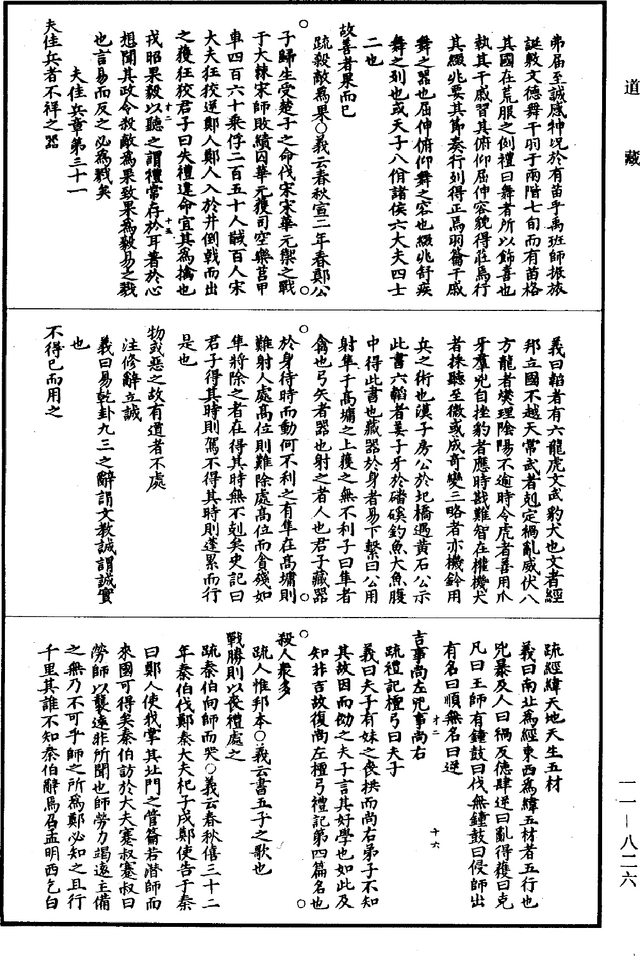 道藏
弗届至諴感神况於有苗乎禹班師振旅
誕敷文德舞干羽于兩階七旬而有苗格
其國在荒服之例禮曰舞者所以飾喜也
執其干戚習其俯仰屈伸容貌得莊焉行
其綴兆要其節奏行列得正焉羽籥干戚
舞之器也屈伸俯仰舞之容也綴兆舒疾
舞之列也或天子八佾諸侯六大夫四士
二也
故善者果而已
疏殺敵爲果○義云春秋宣二年春鄭公
子歸生受楚子之命伐宋宋華元禦之戰
于大棘宋師敗績囚華元獲司空樂莒甲
車四百六十乘俘二百五十人馘百人宋
大夫狂狡逆鄭人鄭人入於井倒戟而出
之獲狂狡君子曰失禮違命宜其爲擒也
戎昭果毅以聽之謂禮常存於耳著於心
想聞其政令殺敵爲果致果爲毅易之戮
也言易而反之必爲戮矣
夫佳兵章第三十一
夫佳兵者不祥之器
十二
十五
義曰韜者有六龍虎文武豹犬也文者經
邦立國不越天常武者剋定禍亂威伏八
方龍者燮理陰陽不逾時令虎者善用爪
牙羣兕自挫豹者應時戡難智在權機犬
者採聽至微或成奇變三略者亦機鈐用
兵之術也漢子房公於圯橋遇黄石公示
此書六韜者姜子牙於磻磎釣魚大魚腹
中得此書也藏器於身者易下繫曰公用
射隼于高墉之上獲之無不利子曰隼者
禽也弓矢者器也射之者人也君子藏器
於身待時而動何不利之有隼在高墉則
難射人處高位則難除處高位而貪殘如
隼將除之者在得其時無不剋矣史記曰
君子得其時則駕不得其時則蓬累而行
是也
物或惡之故有道者不處
注修辭立誠
義曰易乾卦九三之辭謂文教誠謂誠實
也
不得已而用之
疏經緯天地天生五材
義曰南北爲經東西爲緯五材者五行也
兇暴及人曰禍反德肆逆曰亂得獲曰克
凡曰王師有鍾鼓曰伐無鍾鼓曰侵師出
有名曰順無名曰逆
吉事尚左兇事尚右
疏禮記檀弓曰夫子
義曰夫子有妹之喪拱而尚右弟子不知
其故因而効之夫子言其好學也如此及
知非吉故復尚左檀弓禮記第四篇名也
殺人衆多
疏人惟邦本○義云書五子之歌也
戰勝則以喪禮處之
疏秦伯向師而哭○義云春秋僖三十二
年秦伯伐鄭秦大夫杞子戍鄭使告于秦
曰鄭人使我掌其北門之管籥若潛師而
來國可得矣秦伯訪於大夫蹇叔蹇叔曰
勞師以襲遠非所聞也師勞力竭遠主備
之無乃不可乎師之所爲鄭必知之且行
千里其誰不知秦伯辭焉召孟明西乞白
十二
十六
一一—八二六